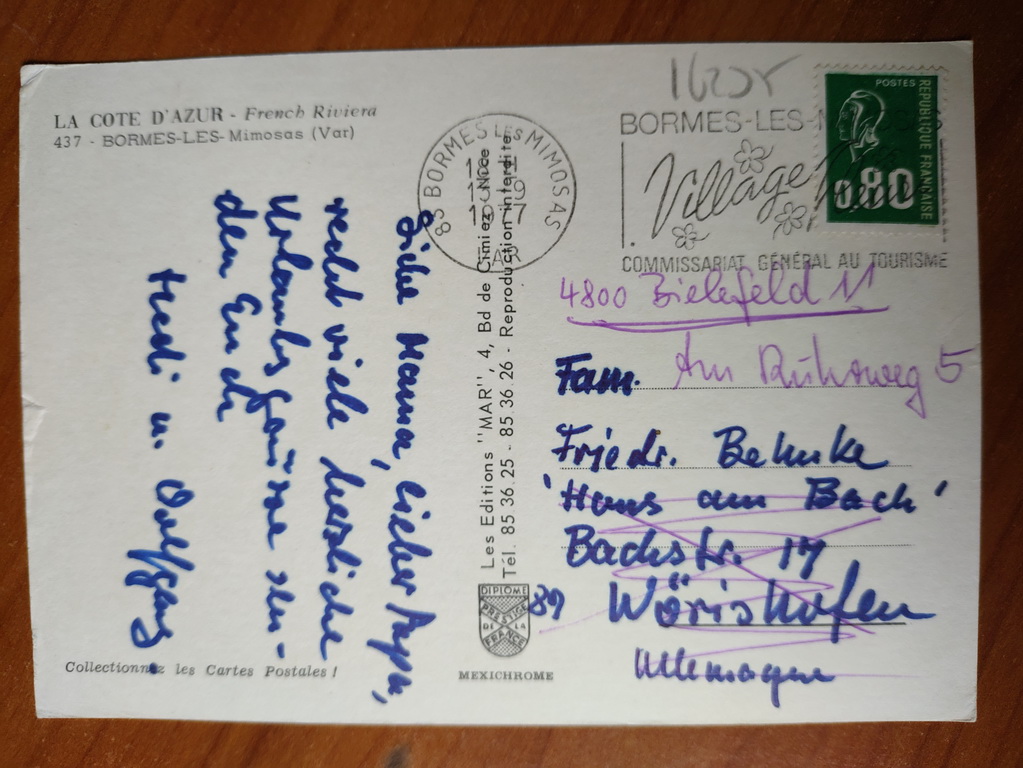 LA COTE D'AZUR - French Riviera
437 - BORMES-LES-Mimosas (Var)
Liebe Mama, lieber Papa,
recht viele herzliche
Urlaubsgrüsse sen-
den Euch
Hedi u. Wolfgang.
Collectionnez les Cartes Postales !
83 BORMES LES MIMOSAS
VAR
Les Editions "MAR", 4, Bd de Cimiez - Nice
Tél. 85 36.25 - 85.36.26 - Reproduction interdite
DIPLOME
PRESTIGE
DE LA
FRANCE
MEXICHROME
BORMES-LES-MIMOSAS
Village
COMMISSARIAT GÉNÉRAL AU TOURISME
POSTES
REPUBLIQUE FRANÇAISE
0,80
4800 Bielefeld 11
Fam. Am
5
Friedr. Behnke
'Haus am Bach'
Bachstr. 17
89 Wörishofen
Allemagne